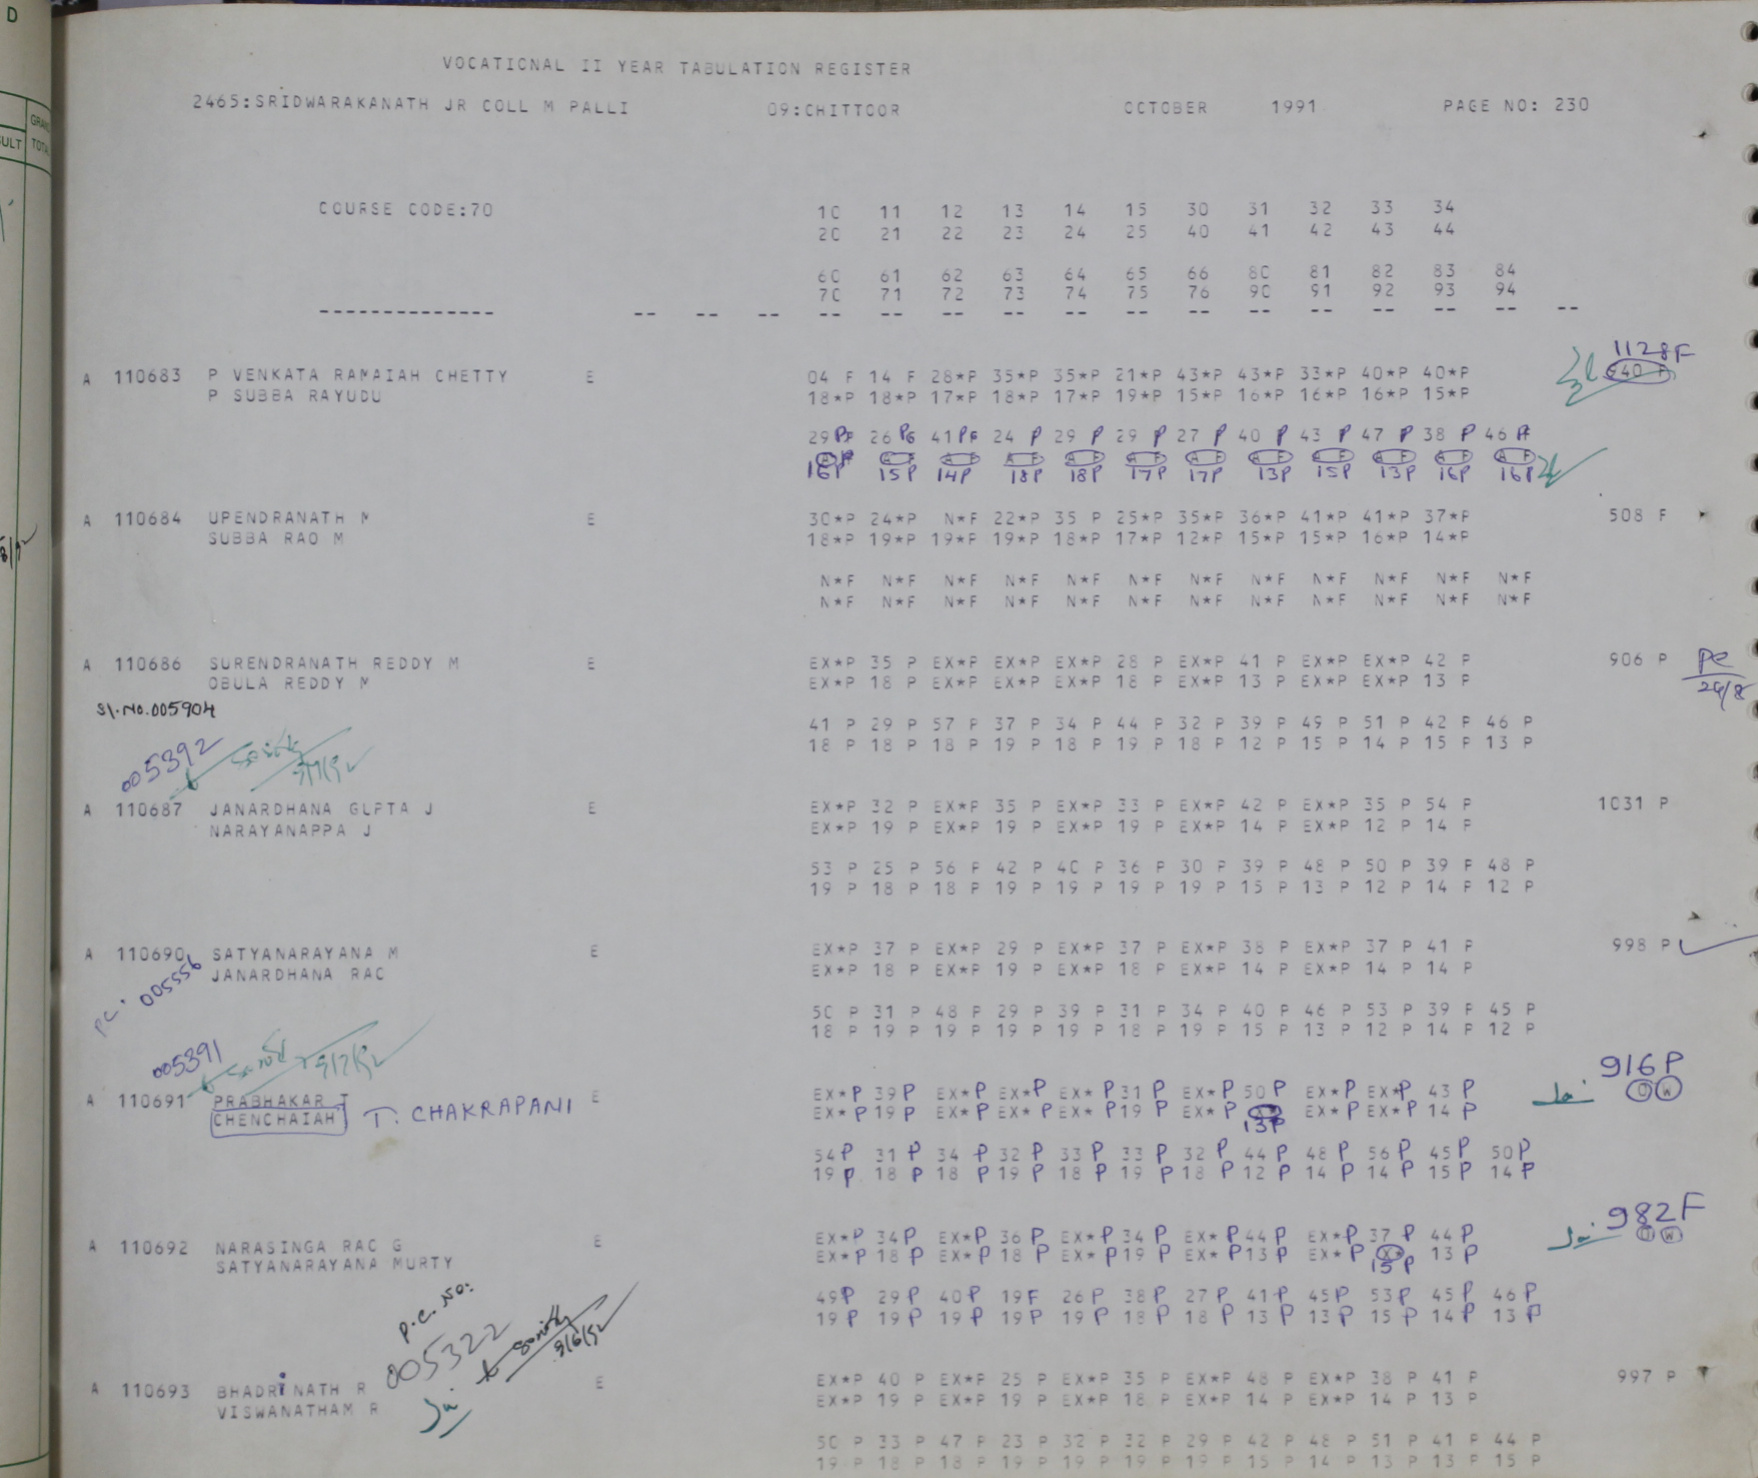 VOCATIONAL II YEAR TABULATION REGISTER
2465:SRIDWARAKANATH JR COLL M PALLI 09:CHITTOOR OCTOBER 1991 PAGE NO: 230
COURSE CODE:70 10 11 12 13 14 15 30 31 32 33 34
20 21 22 23 24 25 40 41 42 43 44
60 61 62 63 64 65 66 80 81 82 83 84
70 71 72 73 74 75 76 90 91 92 93 94
-------------- -- -- -- -- -- -- -- -- -- -- -- -- -- -- -- --
1128F
A 110683 P VENKATA RAMAIAH CHETTY E 04 F 14 F 28*P 35*P 35*P 21*P 43*P 43*P 33*P 40*P 40*P 940 F
P SUBBA RAYUDU 18*P 18*P 17*P 18*P 17*P 19*P 15*P 16*P 16*P 16*P 15*P
29 P 26 P 41 P 24 P 29 P 29 P 27 P 40 P 43 P 47 P 38 P 46 P
A F A F A F A F A F A F A F A F A F A F A F
16P 15P 14P 18P 18P 17P 17P 13P 15P 13P 16P 16P
A 110684 UPENDRANATH M E 30*P 24*P N*F 22*P 35 P 25*P 35*P 36*P 41*P 41*P 37*P 508 F
SUBBA RAO M 18*P 19*P 19*P 19*P 18*P 17*P 12*P 15*P 15*P 16*P 14*P
N*F N*F N*F N*F N*F N*F N*F N*F N*F N*F N*F N*F
N*F N*F N*F N*F N*F N*F N*F N*F N*F N*F N*F N*F
A 110686 SURENDRANATH REDDY M E EX*P 35 P EX*P EX*P EX*P 28 P EX*P 41 P EX*P EX*P 42 P 906 P PC
OBULA REDDY M EX*P 18 P EX*P EX*P EX*P 18 P EX*P 13 P EX*P EX*P 13 P 24/8
Sl.No.005904
41 P 29 P 57 P 37 P 34 P 44 P 32 P 39 P 49 P 51 P 42 P 46 P
18 P 18 P 18 P 19 P 18 P 19 P 18 P 12 P 15 P 14 P 15 P 13 P
005392 9/7/92
A 110687 JANARDHANA GUPTA J E EX*P 32 P EX*P 35 P EX*P 33 P EX*P 42 P EX*P 35 P 54 P 1031 P
NARAYANAPPA J EX*P 19 P EX*P 19 P EX*P 19 P EX*P 14 P EX*P 12 P 14 P
53 P 25 P 56 P 42 P 40 P 36 P 30 P 39 P 48 P 50 P 39 P 48 P
19 P 18 P 18 P 19 P 19 P 19 P 19 P 15 P 13 P 12 P 14 P 12 P
A 110690 SATYANARAYANA M E EX*P 37 P EX*P 29 P EX*P 37 P EX*P 38 P EX*P 37 P 41 P 998 P
JANARDHANA RAO EX*P 18 P EX*P 19 P EX*P 18 P EX*P 14 P EX*P 14 P 14 P
P.C. 005556
50 P 31 P 48 P 29 P 39 P 31 P 34 P 40 P 46 P 53 P 39 P 45 P
18 P 19 P 19 P 19 P 19 P 18 P 19 P 15 P 13 P 12 P 14 P 12 P
005391 9/7/92
916P
A 110691 PRABHAKAR T E EX*P 39 P EX*P EX*P EX*P 31 P EX*P 50 P EX*P EX*P 43 P O W
CHENCHAIAH T. CHAKRAPANI EX*P 19 P EX*P EX*P EX*P 19 P EX*P EX*P EX*P 14 P
13P
54 P 31 P 34 P 32 P 33 P 33 P 32 P 44 P 48 P 56 P 45 P 50 P
19 P 18 P 18 P 19 P 18 P 19 P 18 P 12 P 14 P 14 P 15 P 14 P
982F
A 110692 NARASINGA RAO G E EX*P 34 P EX*P 36 P EX*P 34 P EX*P 44 P EX*P 37 P 44 P W
SATYANARAYANA MURTY EX*P 18 P EX*P 18 P EX*P 19 P EX*P 13 P EX*P 13 P
15P
49 P 29 P 40 P 19 F 26 P 38 P 27 P 41 P 45 P 53 P 45 P 46 P
19 P 19 P 19 P 19 P 19 P 18 P 18 P 13 P 13 P 15 P 14 P 13 P
P.C. NO:
005322 9/6/92
A 110693 BHADRiNATH R E EX*P 40 P EX*P 25 P EX*P 35 P EX*P 48 P EX*P 38 P 41 P 997 P
VISWANATHAM R EX*P 19 P EX*P 19 P EX*P 18 P EX*P 14 P EX*P 14 P 13 P
50 P 33 P 47 P 23 P 32 P 32 P 29 P 42 P 48 P 51 P 41 P 44 P
19 P 18 P 18 P 19 P 19 P 19 P 19 P 15 P 14 P 13 P 13 P 15 P